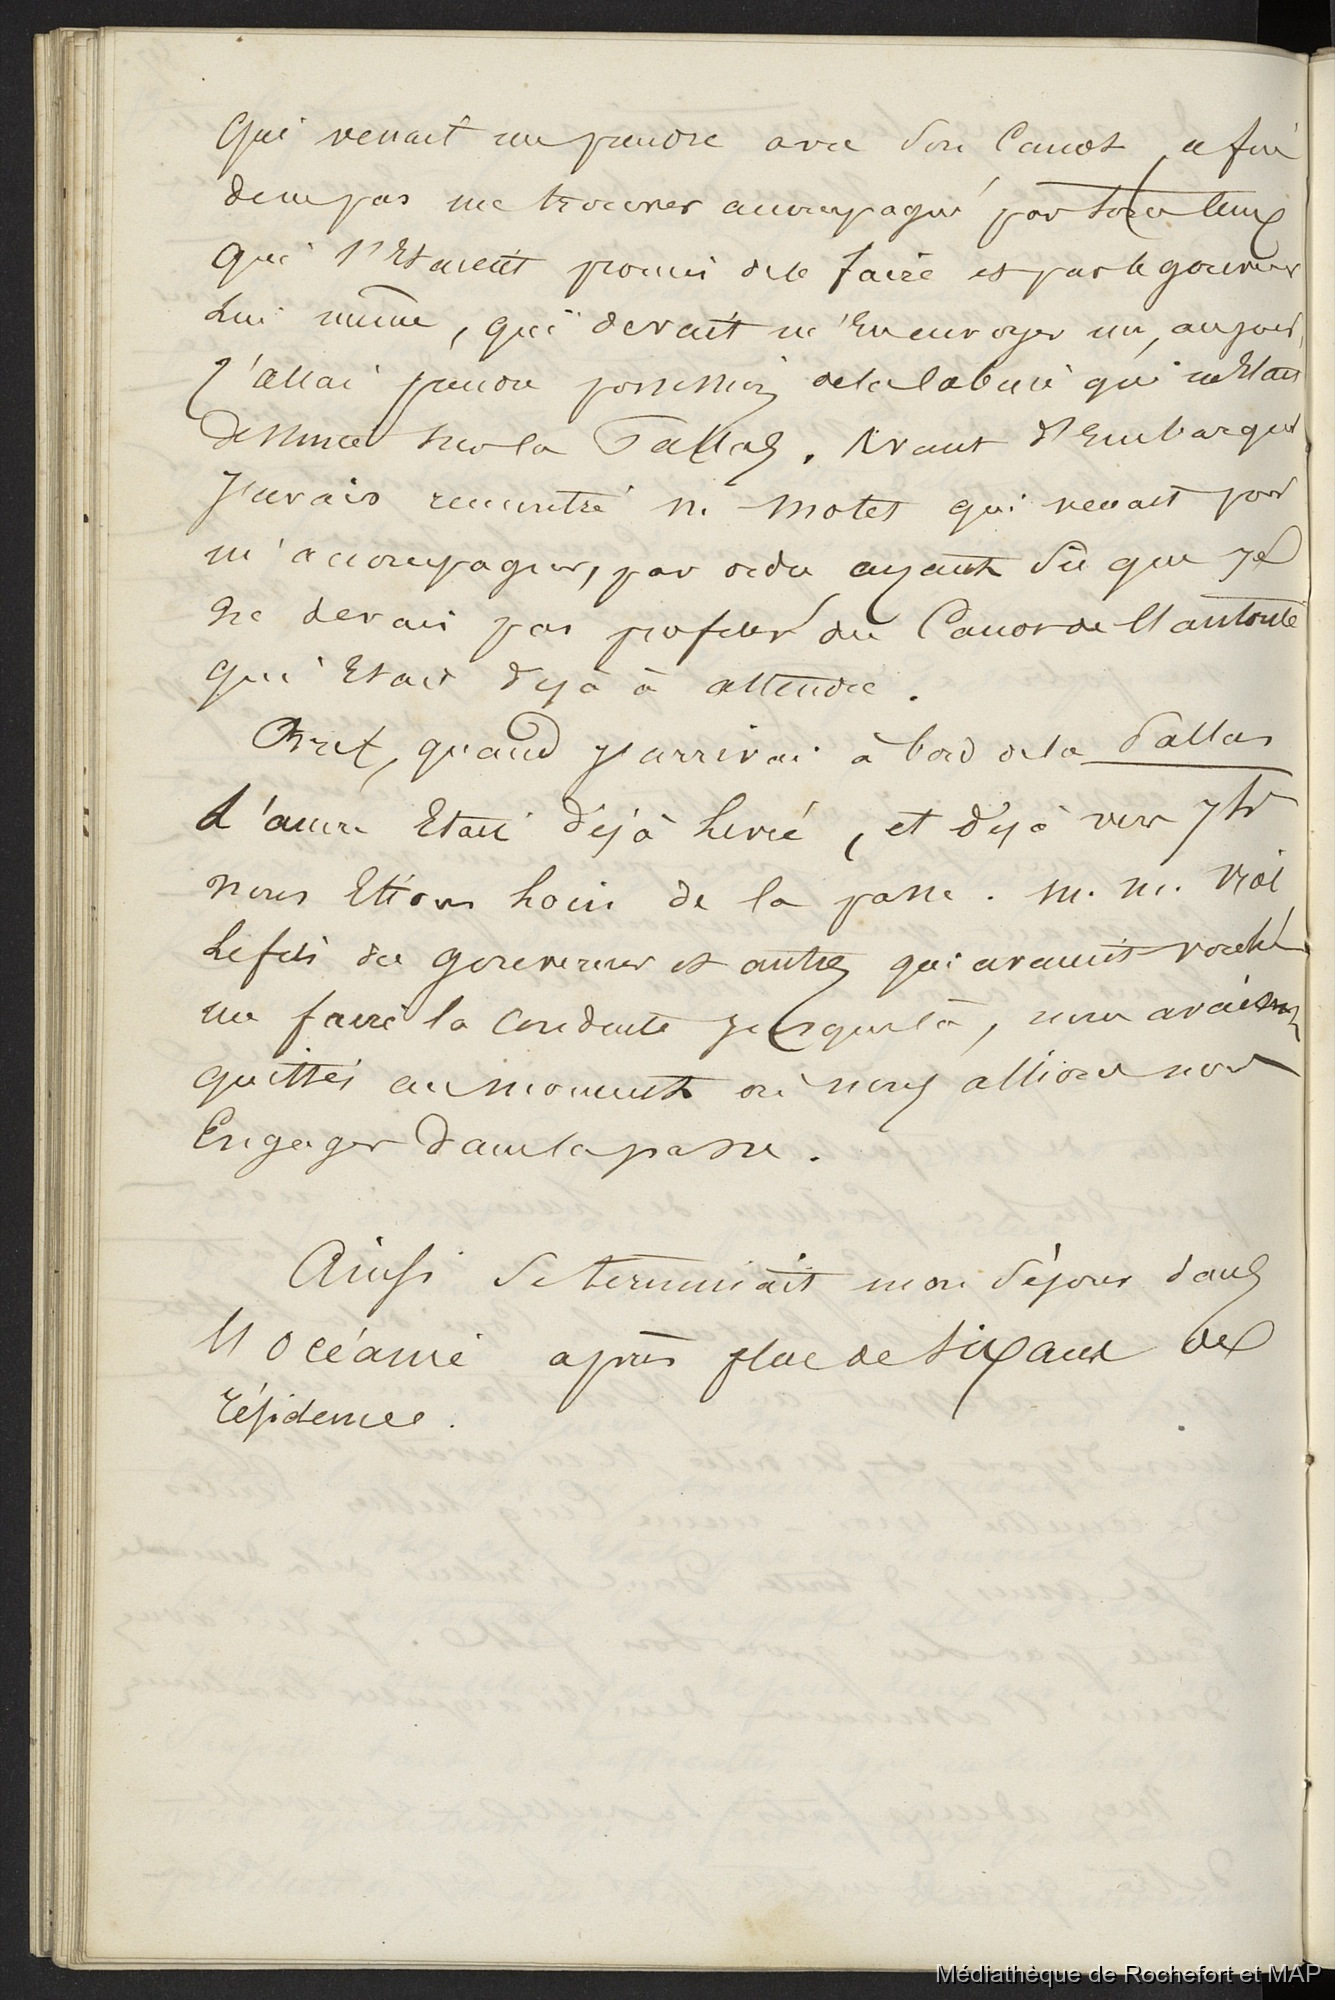 qui venait me prendre avec son canot, afin
de ne pas me trouver accompagné par tous ceux
qui s'étaient promis de le faire et par le gouverneur
lui même, qui devait m'en envoyer un, au jour,
j'allai prendre possession de la cabine qui m'était
destinée sur la Pallas. Avant d'embarquer
j'avais rencontré M. Motet qui venait pour
m'accompagner, par ordre ayant su que je
ne devais pas profiter du canot de l'autorité
qui était déjà à attendre.
Bref, quand j'arrivai à bord de la Pallas
l'ancre était déjà levée, et déjà vers 7h
nous étions loin de la passe. M. M. Vial
le fils du gouverneur et autres qui avaient voulu
me faire la conduite jusque là, nous avaient
quittés au moment où nous allions nous
engager dans la passe.
Ainsi se terminait mon séjour dans
l'Océanie après plus de six ans de
résidence.
Médiathèque de Rochefort et MAP